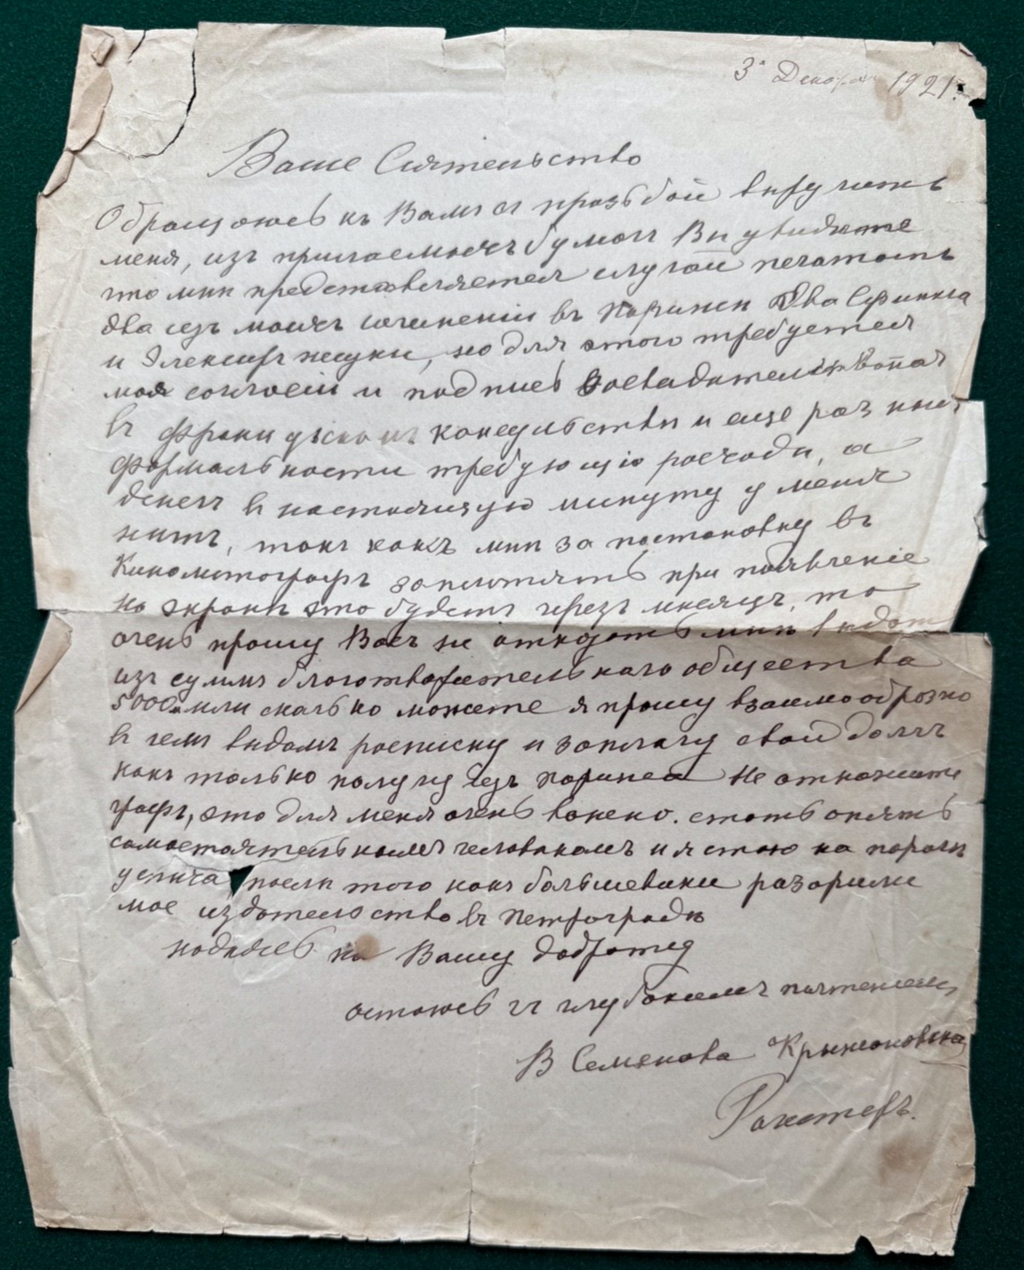 3го Декабря 1921.
Ваше Сиятельство
Обращаюсь къ Вамъ съ прозьбой выручить
меня, изъ прилагаемыхъ бумагъ Вы увидите
что мнѣ представляется случай печатать
два изъ моихъ сочиненій въ Парижѣ Два Сфинкса
и Элексиръ жизни, но для этого требуется
мое согласіе и подпись
въ французскомъ консульствѣ и еще разныя
формальности требующія расходы, а
денегъ въ настоящую минуту у меня
нѣтъ, такъ какъ мнѣ за постановку въ
Кинематографъ заплотятъ при появленіе
на экранѣ это будетъ черезъ мѣсяцъ, то
очень прошу Васъ не отказать мнѣ выдать
изъ суммъ благотварительнаго общества
5000 или сколько можете я прошу взаимообразно
въ чемъ выдамъ росписку и заплачу свой долгъ
какъ только получу изъ Парижа Не откажите
графъ, это для меня очень важно. стать опять
самостоятельнымъ человѣкомъ и я стою на порогѣ
успѣха, послѣ того какъ большевики разорили
мое издательство въ Петроградѣ
надѣясь на Вашу доброту
остаюсь съ глубокимъ почтеніемъ
В Семенова Крыжановская
Рочестеръ.